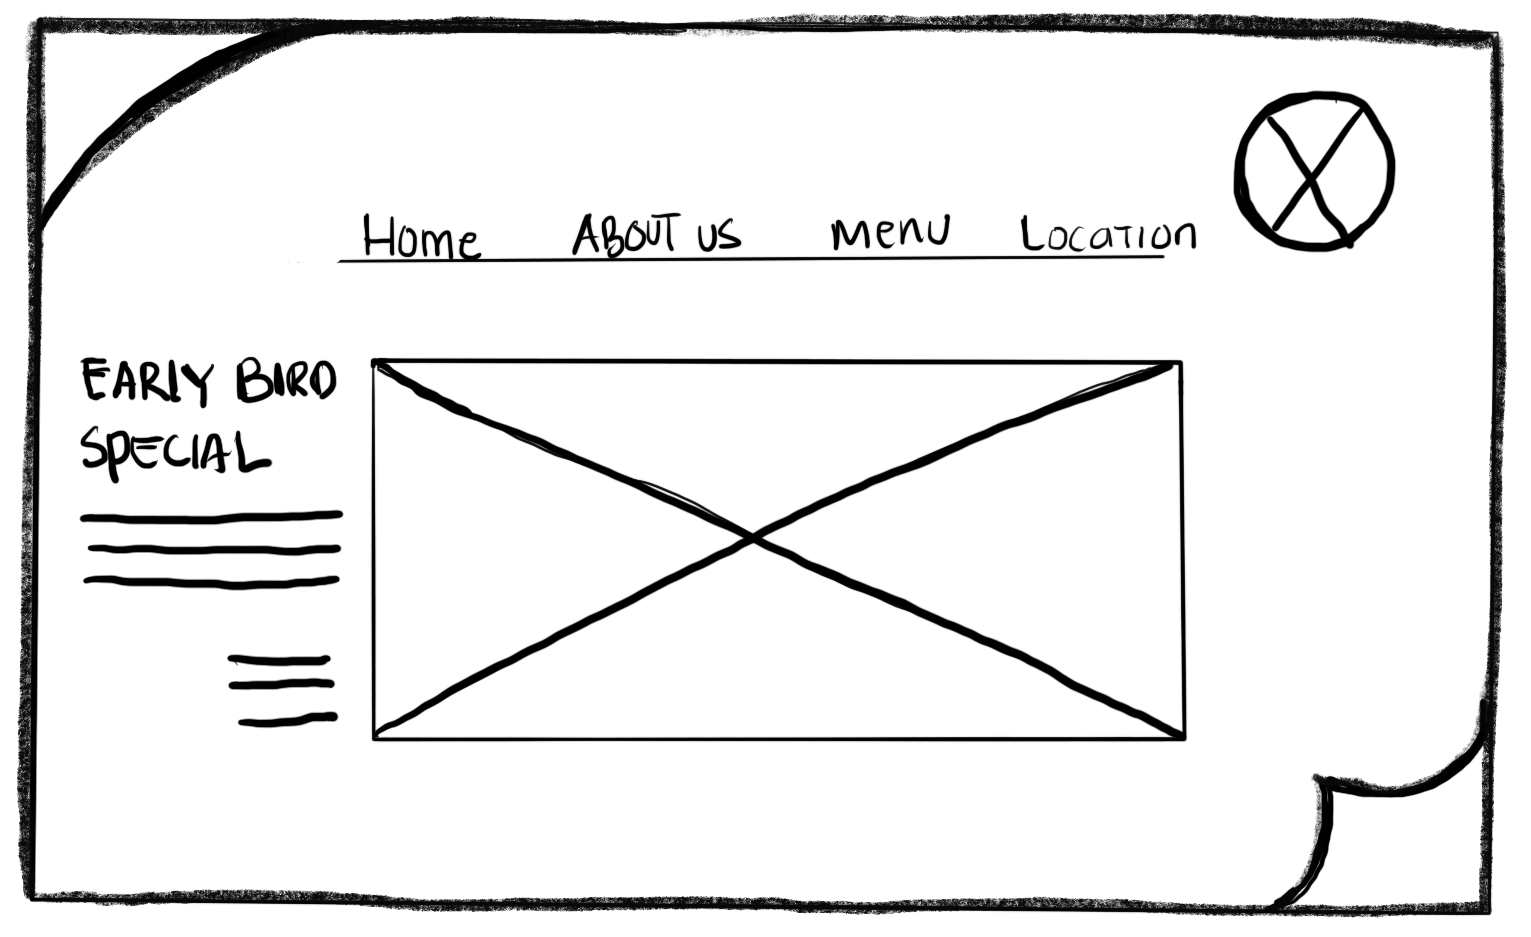 Home ABOUT US MENU LOCATION
EARLY BIRD
SPECIAL